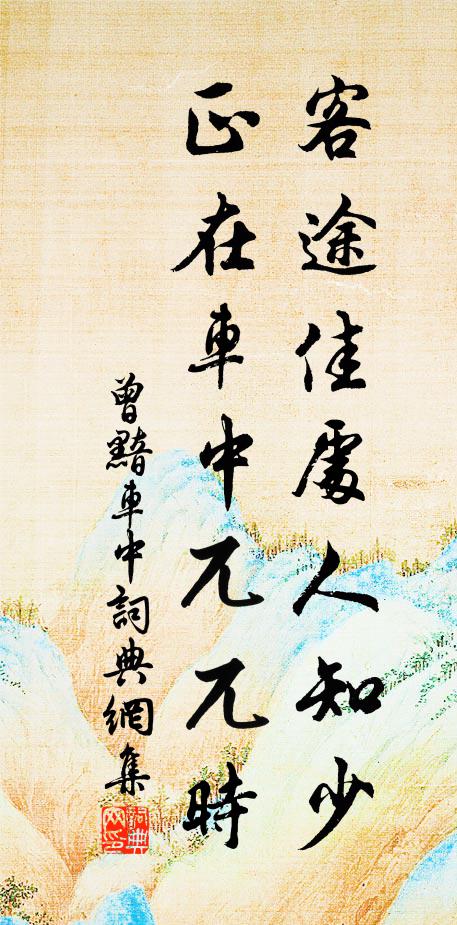 客途佳處人知少
正在車中兀兀時
曾黯車中詞典網集
詞典網印